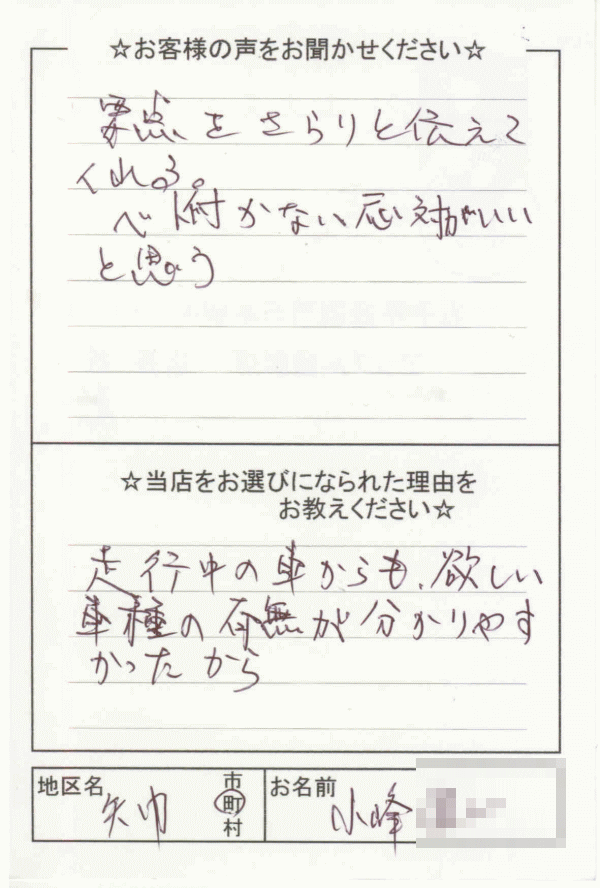 ☆お客様の声をお聞かせください☆
要点をさらりと伝えて
くれる。
べた付かない応対がいい
と思う
☆当店をお選びになられた理由を
お教えください☆
走行中の車からも、欲しい
車種の有無が分かりやす
かったから
地区名 矢巾 市町村 お名前 小峰